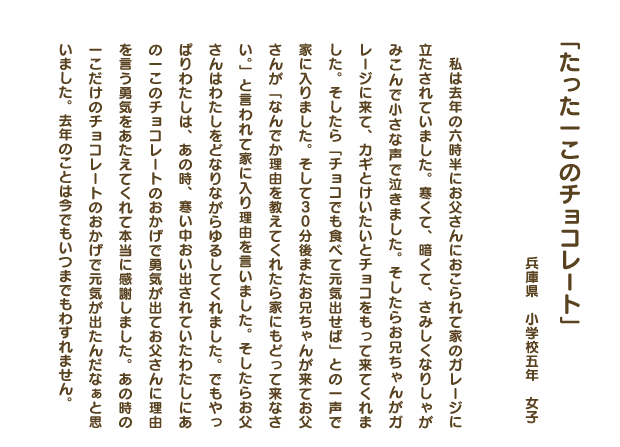 「たった一このチョコレート」
兵庫県　小学校五年　女子
私は去年の六時半にお父さんにおこられて家のガレージに
立たされていました。寒くて、暗くて、さみしくなりしゃが
みこんで小さな声で泣きました。そしたらお兄ちゃんがガ
レージに来て、カギとけいたいとチョコをもって来てくれま
した。そしたら「チョコでも食べて元気出せば」との一声で
家に入りました。そして３０分後またお兄ちゃんが来てお父
さんが「なんでか理由を教えてくれたら家にもどって来なさ
い。」と言われて家に入り理由を言いました。そしたらお父
さんはわたしをどなりながらゆるしてくれました。でもやっ
ぱりわたしは、あの時、寒い中おい出されていたわたしにあ
の一このチョコレートのおかげで勇気が出てお父さんに理由
を言う勇気をあたえてくれて本当に感謝しました。あの時の
一こだけのチョコレートのおかげで元気が出たんだなぁと思
いました。去年のことは今でもいつまでもわすれません。